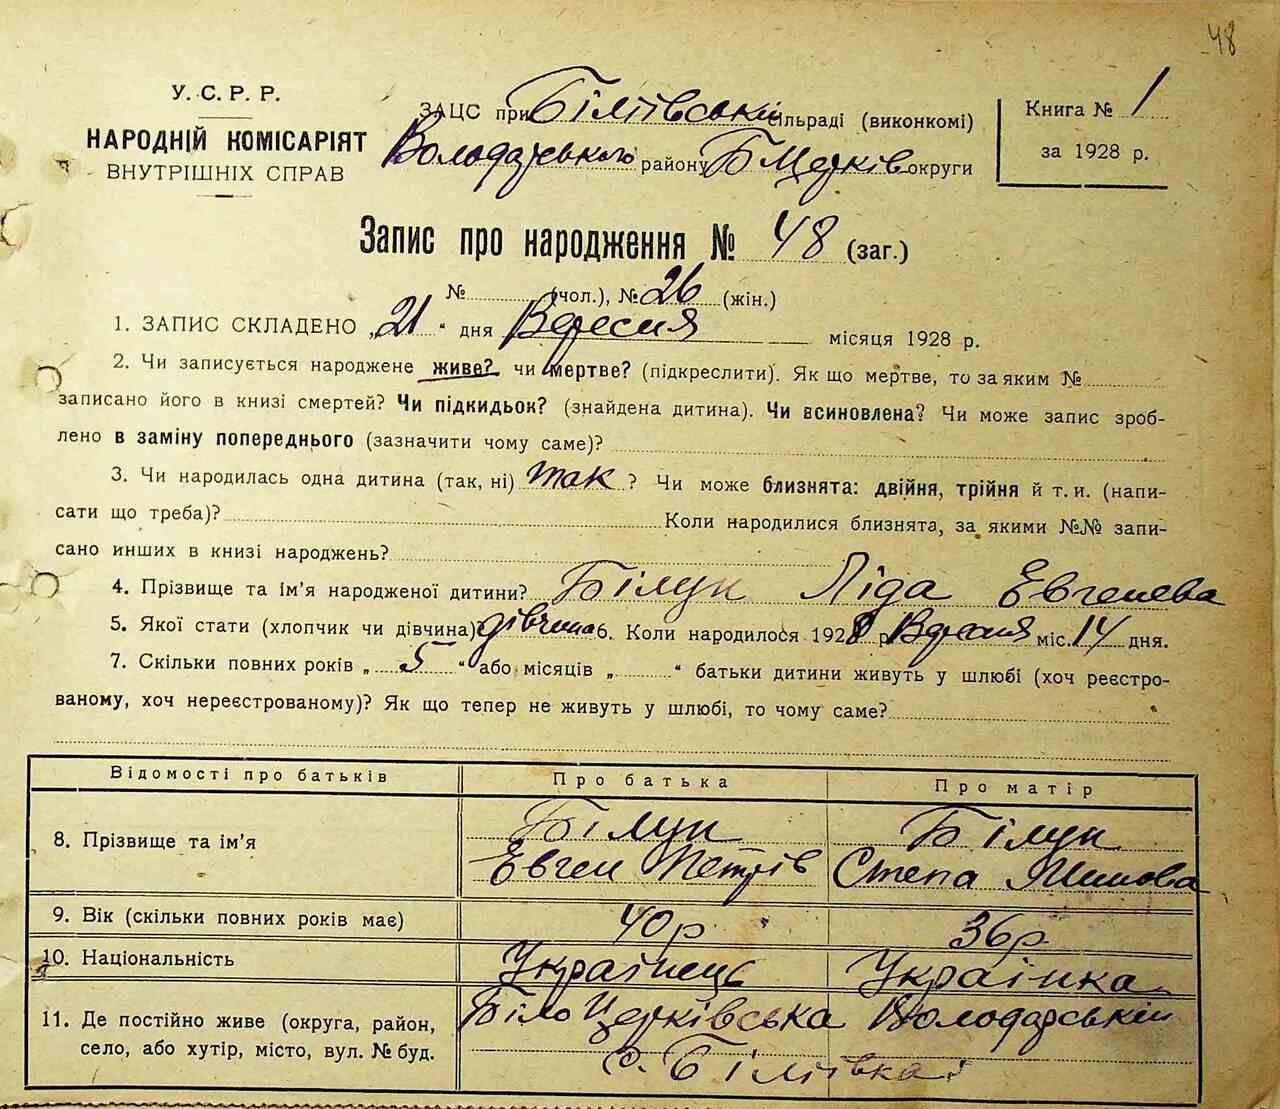 48
У.С.Р.Р.
НАРОДНІЙ КОМІСАРІЯТ
ВНУТРІШНІХ СПРАВ
ЗАЦС при Біліївській сільраді (виконкомі)
Володарського району Б Церків округи
Книга № 1
за 1928 р.
Запис про народження № 48 (заг.)
№ (чол.), № 26 (жін.)
1. ЗАПИС СКЛАДЕНО „21“ дня Вересня місяця 1928 р.
2. Чи записується народжене живе? чи мертве? (підкреслити). Як що мертве, то за яким №
записано його в книзі смертей? Чи підкидьок? (знайдена дитина). Чи всиновлена? Чи може запис зроб-
лено в заміну попереднього (зазначити чому саме)?
3. Чи народилась одна дитина (так, ні) так? Чи може близнята: двійня, трійня й т. и. (напи-
сати що треба)? Коли народилися близнята, за якими №№ запи-
сано инших в книзі народжень?
4. Прізвище та ім'я народженої дитини? Білук Ліда Евгенева
5. Якої стати (хлопчик чи дівчина) дівчина 6. Коли народилося 1928 р Вересня міс. 14 дня.
7. Скільки повних років „5“ або місяців „ “ батьки дитини живуть у шлюбі (хоч реєстро-
ваному, хоч нереєстрованому)? Як що тепер не живуть у шлюбі, то чому саме?
Відомості про батьків Про батька Про матір
8. Прізвище та ім'я Білук Евген Петрів Білук Степа
9. Вік (скільки повних років має) 40 р 36 р.
10. Національність Українець Українка
11. Де постійно живе (округа, район, Біло Церківська Володарський
село, або хутір, місто, вул. № буд. с. Біліївка